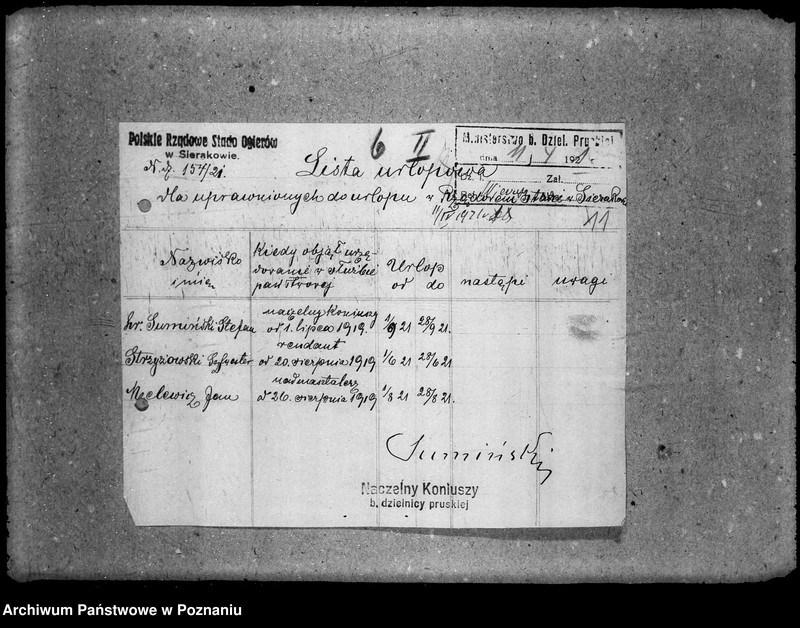 Polskie Rządowe Stado Ogierów
w Sierakowie.
N. dz. 154/21.
6 II
Ministerstwo b. Dziel. Pruskiej
dnia 11/4 1921 r.
Zał.
Lista urlopowa
dla uprawnionych do urlopu w Rządowem Stadzie w Sierakowie
11
Nazwisko i imię
Kiedy objął urzędowanie w służbie państwowej
Urlop od do
nastąpi
uwagi
hr. Sumiński Stefan
naczelny koniuszy od 1. lipca 1919.
1/9 21 28/9 21.
Strzyżowski Sylwester
rendant od 20. sierpnia 1919
1/6 21 28/6 21
Mielewicz Jan
nadmasztalerz od 26. sierpnia 1919
1/8 21 28/8 21.
Sumiński
Naczelny Koniuszy
b. dzielnicy pruskiej
Archiwum Państwowe w Poznaniu